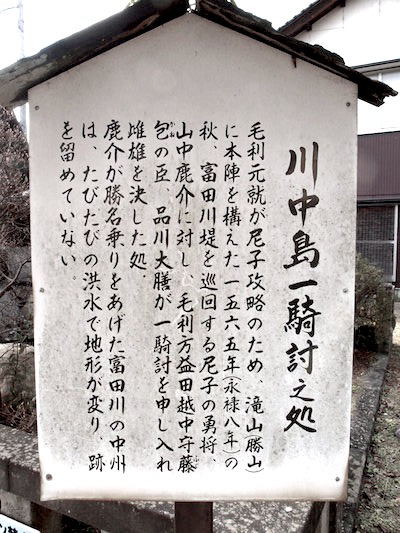 川中島一騎討之処
毛利元就が尼子攻略のため、滝山(勝山)
に本陣を構えた一五六五年(永禄八年)の
秋、富田川堤を巡回する尼子の勇将、
山中鹿介に対し、毛利方益田越中守藤
包の臣、品川大膳が一騎討を申し入れ
かね
雌雄を決した処。
鹿介が勝名乗りをあげた富田川の中州
は、たびたびの洪水で地形が変り、跡
を留めていない。